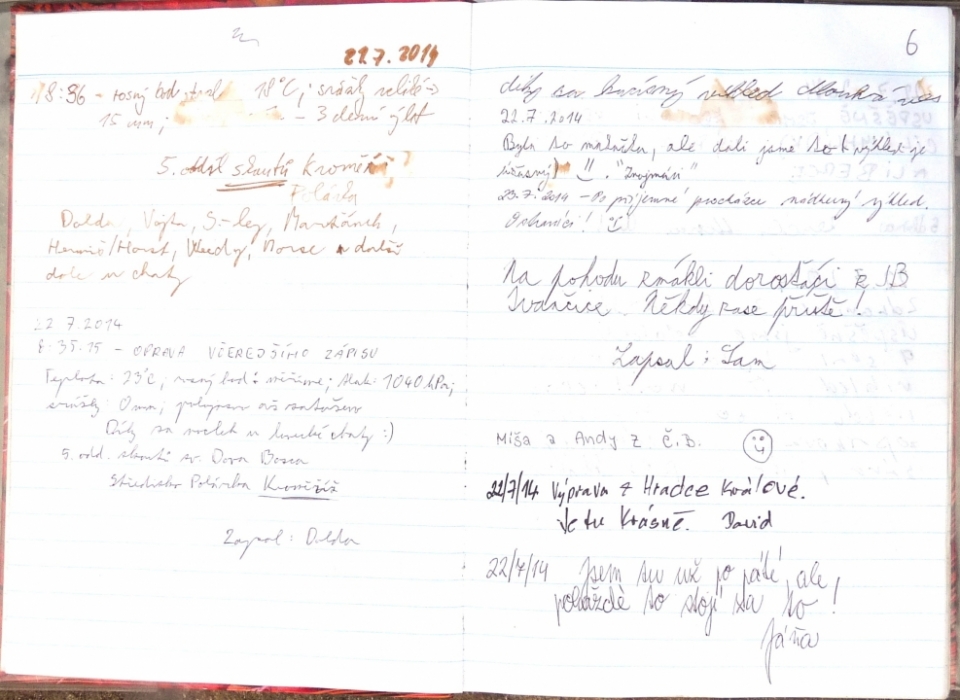 22.7.2014
18:36 - rosný bod 18°C; srážky
15 mm; - 3 denní výlet
5. odd. skautů Kroměříž
Polárka
Dolda, Vojta, S-ley,
Hermiš/Horst, Weedy, Morse a další
dole u chaty
22 7.2014
8:35:15 - OPRAVA VČEREJŠÍHO ZÁPISU
Teplota: 23°C, rosný bod: ; tlak: 1040 hPa;
srážky: 0 mm;
Díky za nocleh u chaty :)
5. odd. skautů sv. Dona Bosca
Středisko Polárka Kroměříž
Zapsal: Dolda
6
díky za výhled
22.7.2014
Byla to makačka, ale dali jsme to a výhled je
úžasný) !! . "Znojmáci"
23.7.2014 - Po příjemné procházce nádherný výhled.
Ochranáci! :)
Na pohodu zmákli dorosťáci z JB
Ivančice. Někdy zase příště!
Zapsal: Sam
Míša a Andy z Č.B.
22/7/14 Výprava z Hradce Králové.
Je tu krásně. David
22/7/14 Jsem tu už po páté, ale
pokaždé to stojí za to!
Jáňa